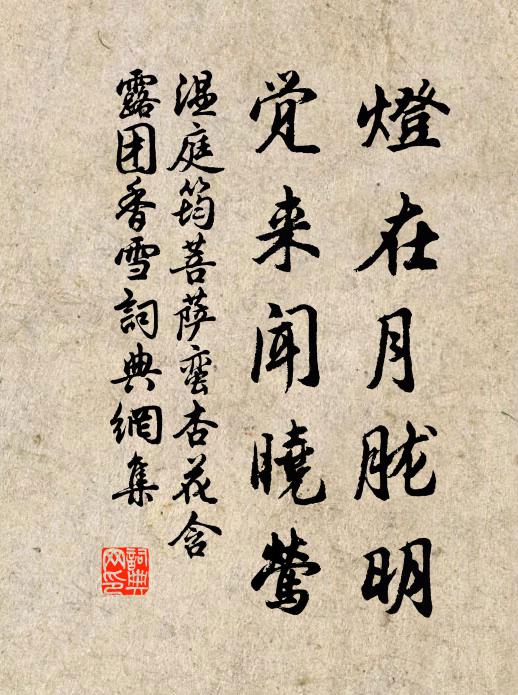 燈在月胧明
觉来闻曉莺
温庭筠菩萨蛮杏花含
露团香雪詞典網集
詞典网印